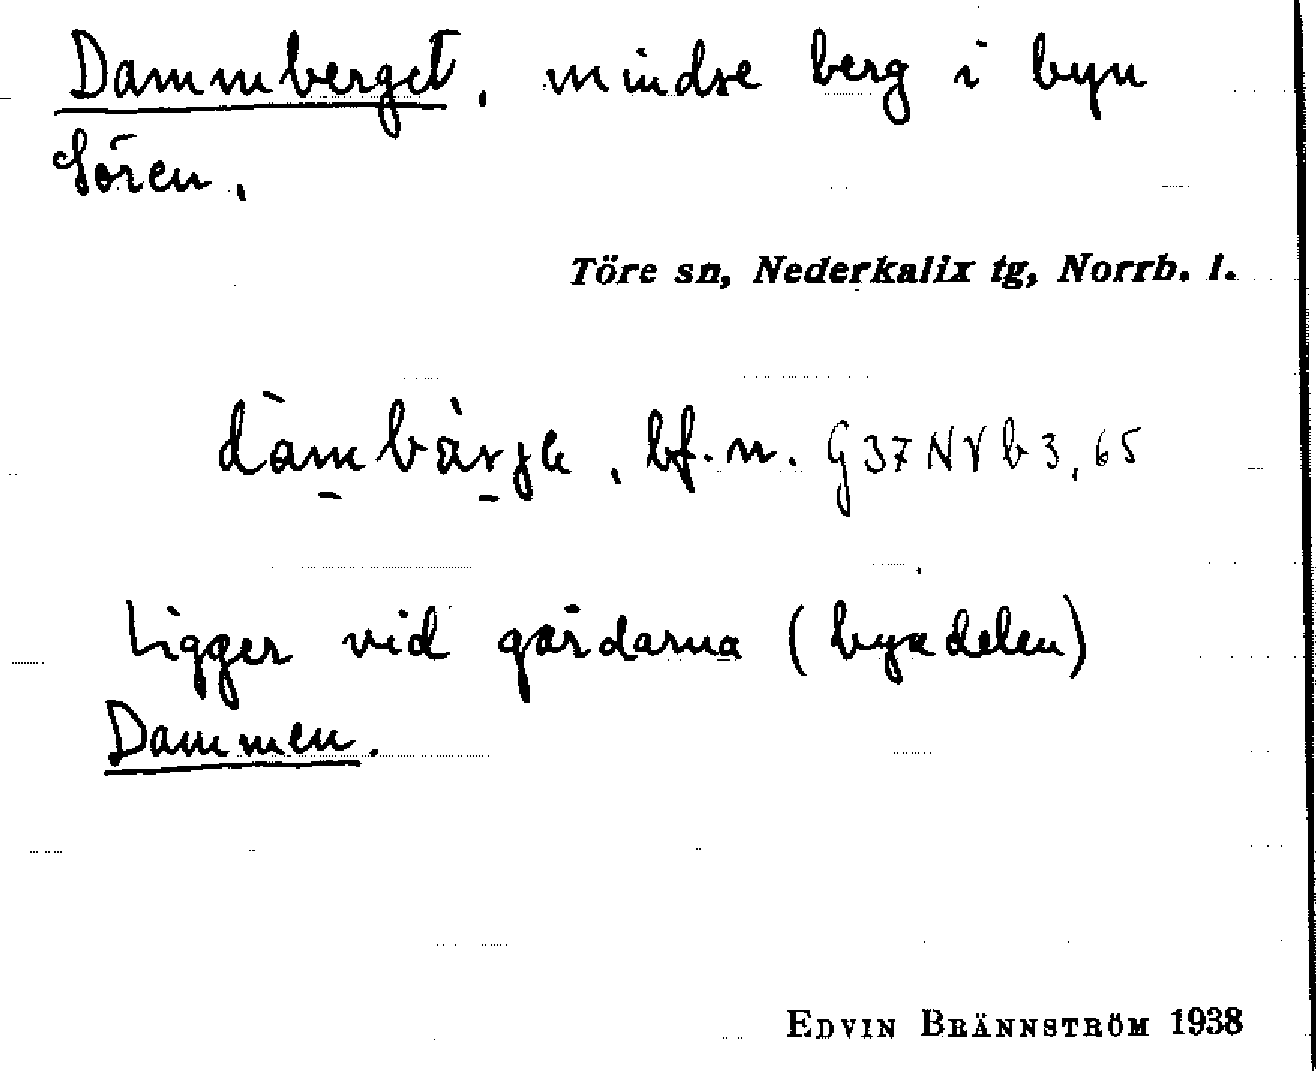 Dammberget, mindre berg i byn
Sören.
Töre sn, Nederkalix tg, Norrb. l.
bf. n. G37NRb3,65
Ligger vid gårdarna (byadelen)
Dammen.
EDVIN BRÄNNSTRÖM 1938